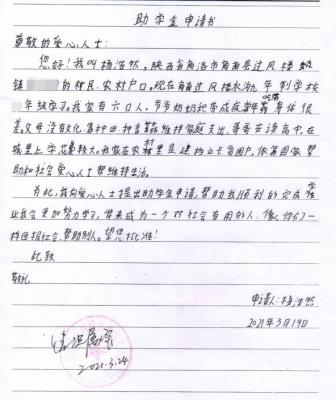 助学金申请书
尊敬的爱心人士：
您好！我叫杨浩然，陕西省商洛市商南县过风楼
镇 的村民，农村户口。现在商南过风楼水沟 年制学校
年级学习。我家有六口人，爷爷奶奶 身体很
差，父母没有文化，靠种田种香菇维持家庭支出，哥哥在读高中，在
城里上学花费较大。我家在农村里是建档立卡贫困户，依靠国家帮
助和社会爱心人士帮维持生活。
为此，我向爱心人士提出助学金申请，帮助我顺利的完成学
业，我会更加努力学习，将来成为一个对社会有用的人，像你们一
样回报社会，帮助别人。望您批准！
此致
敬礼
申请人：杨浩然
2021年3月19日
情况属实
2021.3.24